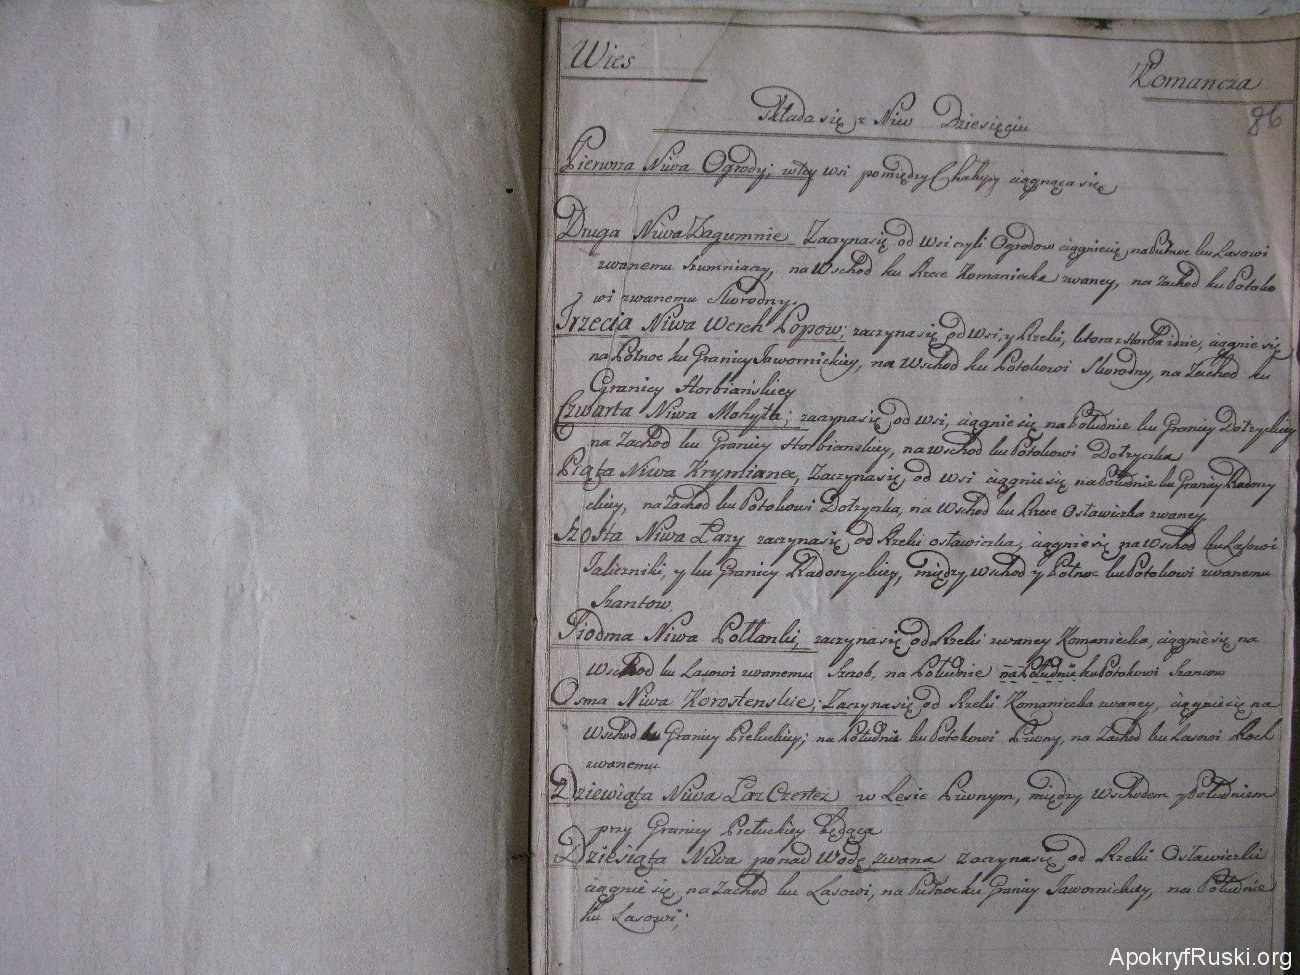 Wieś
Komancza
86
Składa się z Niw Dziesięciu
Pierwsza Niwa Ogrody; w tey wsi pomiędzy Chałupy ciągnąca się
Druga Niwa Zagumnie Zaczyna się od wsi czyli Ogrodow ciągnie się na Pułnoc ku Lasowi
zwanemu Szumniaczy, na Wschod ku Rzece Komaniecka zwaney, na Zachod ku Potoko
wi zwanemu Skorodny.
Trzecia Niwa Werch Popow; zaczyna się od Wsi, y Rzeki, ktora z Horba idzie, ciągnie się
na Połnoc ku Granicy Jawornickiey, na Wschod ku Potokowi Skorodny, na Zachod ku
Granicy Horbiańskiey
Czwarta Niwa Mohyła; zaczyna się od wsi, ciągnie się na Południe ku Granicy Dołzyckiey
na Zachod ku Granicy Horbianskiey, na wschod ku Potokowi Dołzyczka
Piąta Niwa Krymianec, Zaczyna się od wsi ciągnie się na Południe ku Granicy Radoszy
ckiey, na Zachod ku Potokowi Dołzyczka, na Wschod ku Rzece Osławiczka zwaney
Szosta Niwa Łazy zaczyna się od Rzeki osławiczka, ciągnie się na Wschod ku Lasowi
Jalierniki, y ku Granicy Radoszyckiey, między Wschod y Połnoc ku Potokowi zwanemu
Szantow
Siodma Niwa Połłanki, zaczyna się od Rzeki zwaney Komaniecka, ciągnie się na
Wschod ku Lasowi zwanemu Szczob, na Południe na Południe ku Potokowi Szantow
Osma Niwa Korostenskie; Zaczyna się od Rzeki Komaniecka zwaney, ciągnie się na
Wschod ku Granicy Prełuckiey; na Południe ku Potokowi Piwny, na Zachod ku Lasowi Roch
zwanemu
Dziewiąta Niwa Łaz Czertez w Lesie Piwnym, między Wschodem y Południem
przy Granicy Prełuckiey będąca
Dziesiąta Niwa ponad Wodę zwana zaczyna się od Rzeki Osławiczki
ciągnie się na Zachod ku Lasowi, na Pułnoc ku Granicy Jawornickiey, na Południe
ku Lasowi;
ApokryfRuski.org